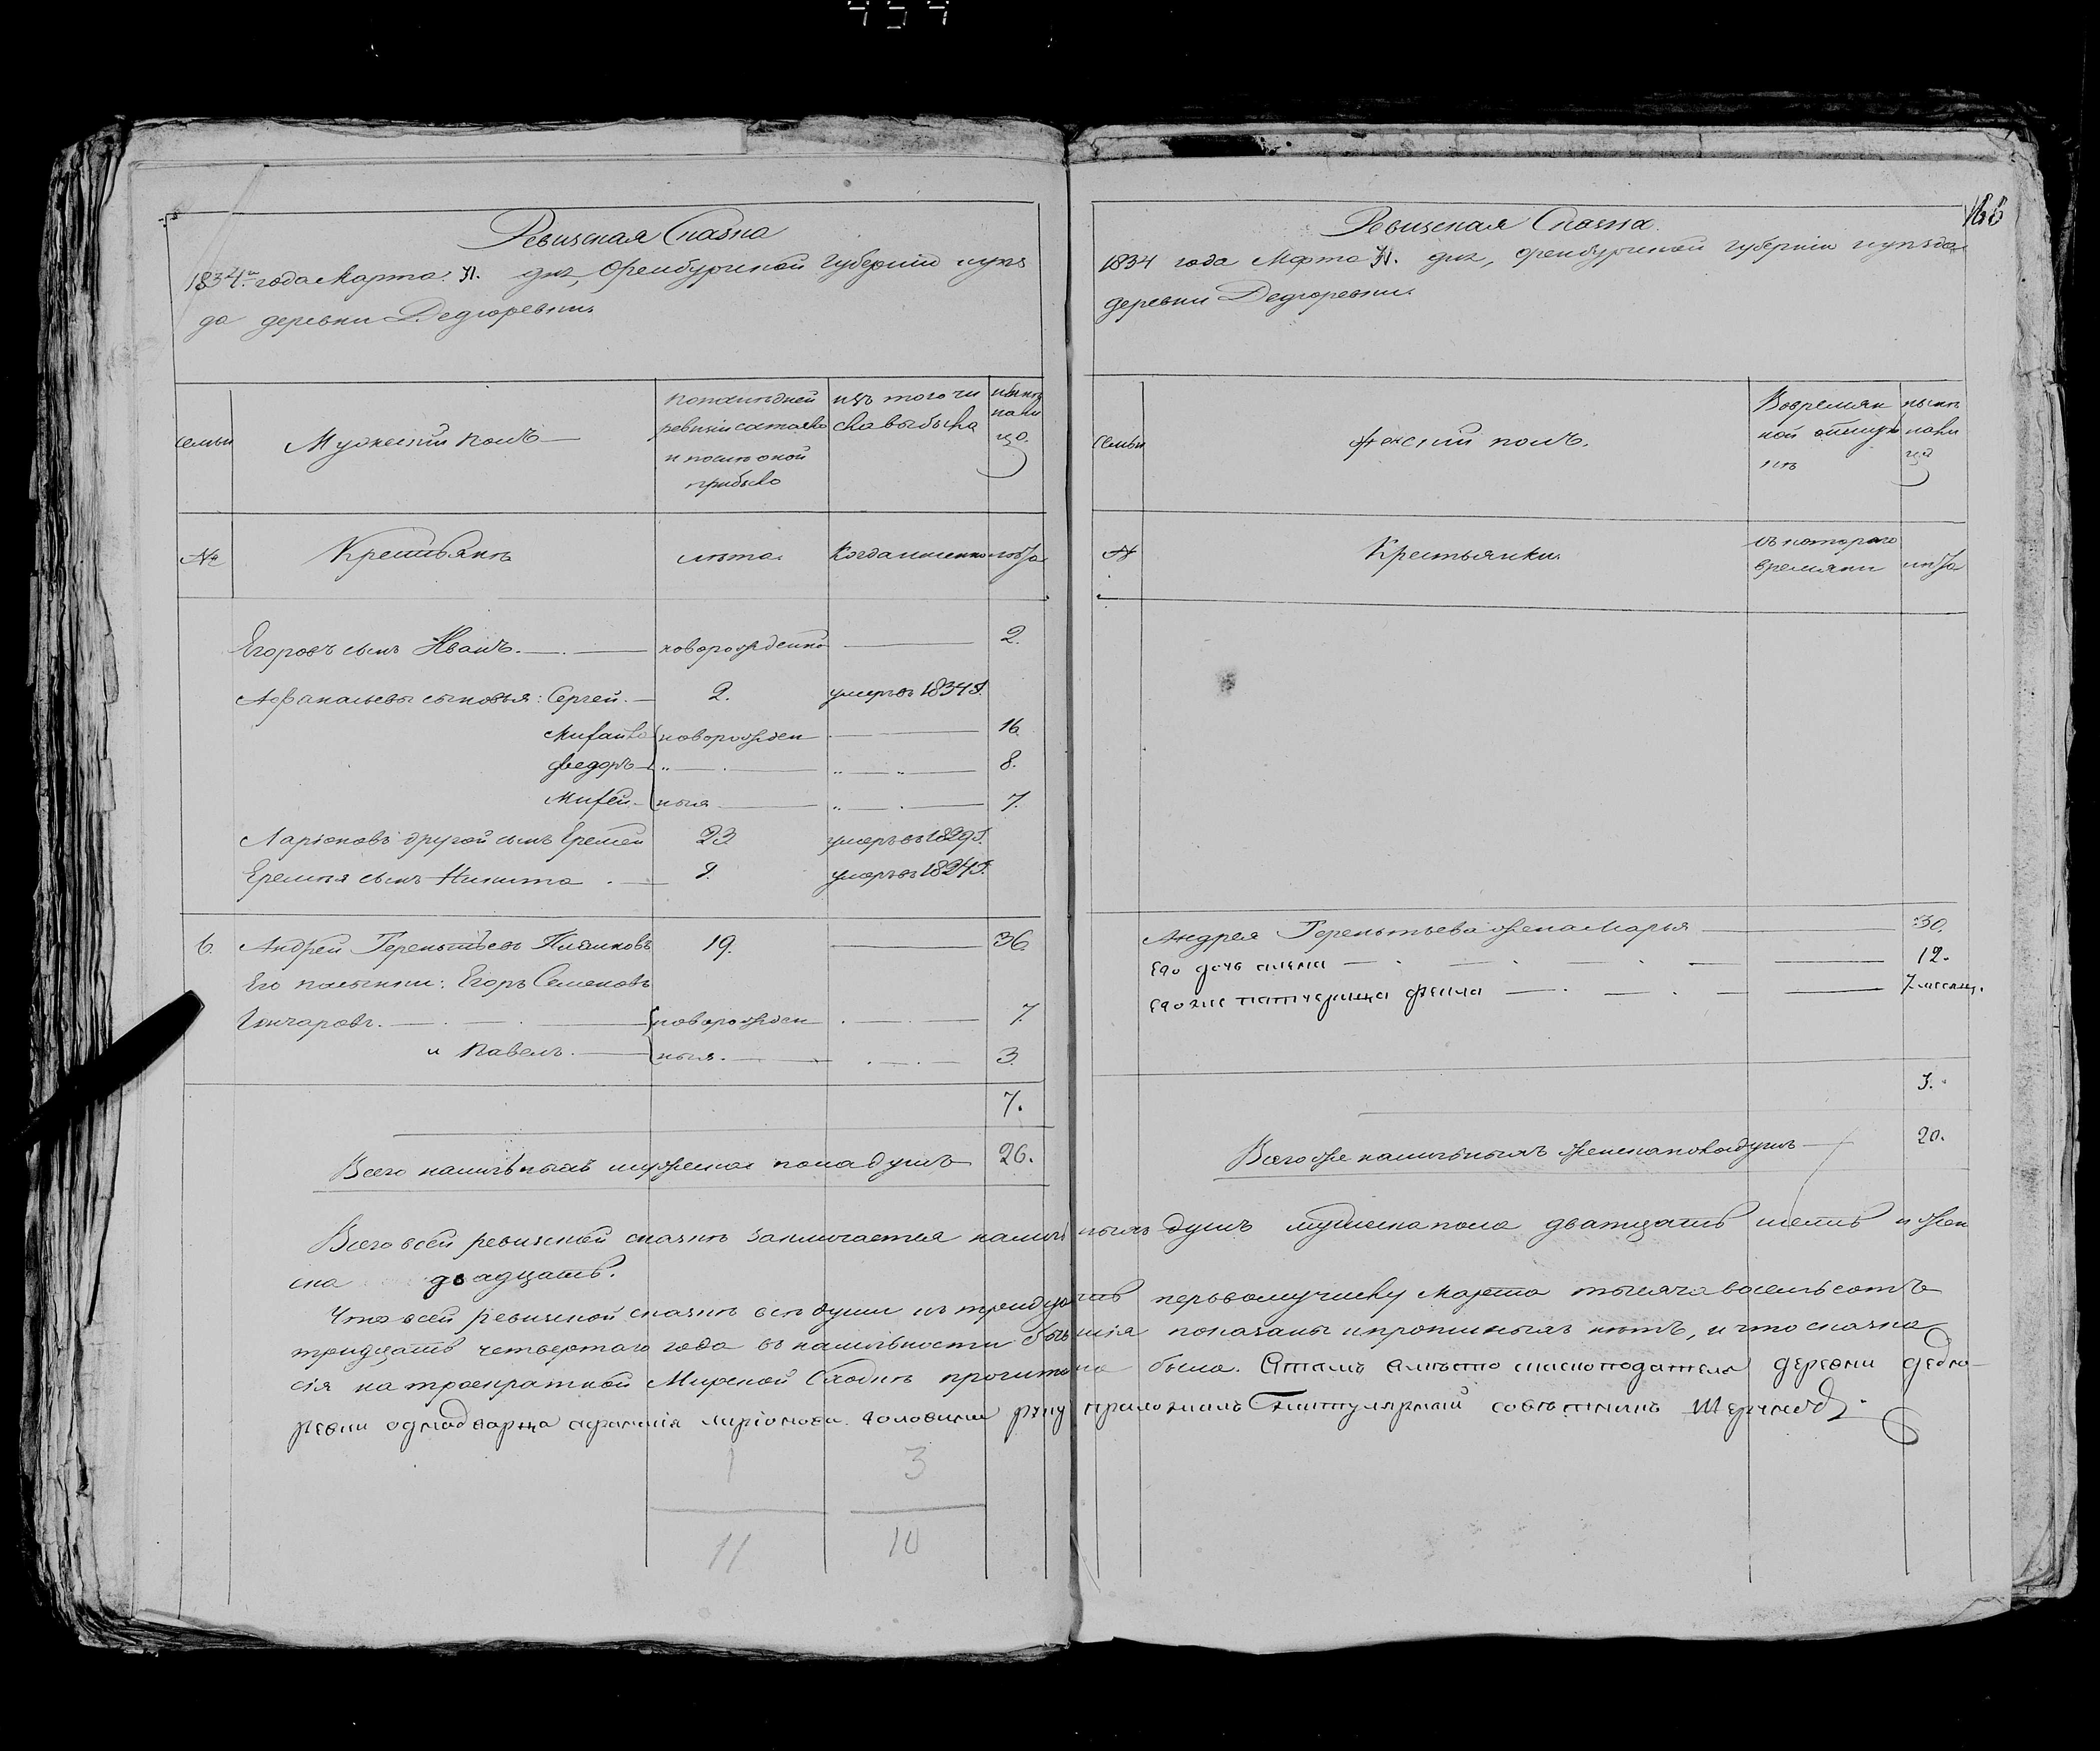 Ревизская Сказка
1834го года Марта 31. дня, Оренбургской губернии и уез
да деревни Дедюревки.
семьи
Мужеский полъ
По последней
ревизіи состояло
и после оной
прибыло
изъ того чи
сла выбыло
Ныне
нали
цо.
№
Крестьяне
лета.
Когда именно
лета
Егоровъ сынъ Иванъ.
новорожденной
2.
Афанасьевы сыновья: Сергей.
2.
умеръ въ 1834 г.
Михайло
новорожден
16
Федоръ
8.
Михей
ныя
7.
Ларіоновъ другой сынъ Еремей
23
умеръ въ 1829 г.
Еремея сынъ Никита
9.
умеръ въ 1824 г.
6.
Андрей Терентьевъ
19.
36.
Его пасынки: Егоръ Семеновъ
Гончаровъ.
новорожден
7.
и Павелъ.
ныя.
3.
7.
Всего наличныхъ мужеска пола душъ
26.
1 3
11 10
166
Ревизская Сказка.
1834 года Марта 31. дня, Оренбургской губерніи и уезда
деревни Дедюревки.
Семьи
Женский полъ.
Во времян
ной отлуч
ке
ныне
нали
цо
№
Крестьянки.
съ котораго
времяни
лета
Андрея Терентьева жена Марья
30.
его дочь
12.
его же падчерица
7 месяц.
3.
Всего же наличныхъ женска пола душъ
20.
Всего в сей ревизской сказке заключается наличныхъ душъ мужеска пола дватцать шесть и жен
ска двадцать.
Что в сей ревизской сказке все души къ тридцать первому числу Марта тысяча восемьсотъ
тридцать четвертаго года въ наличности бывшія показаны и прописныхъ нетъ, и что сказка
сія на троекратной Мирской Сходке прочитана была. Въ томъ вместо сказкоподателя деревни Дедю-
ревки однодворца Ларіонова руку приложилъ Титулярный советникъ